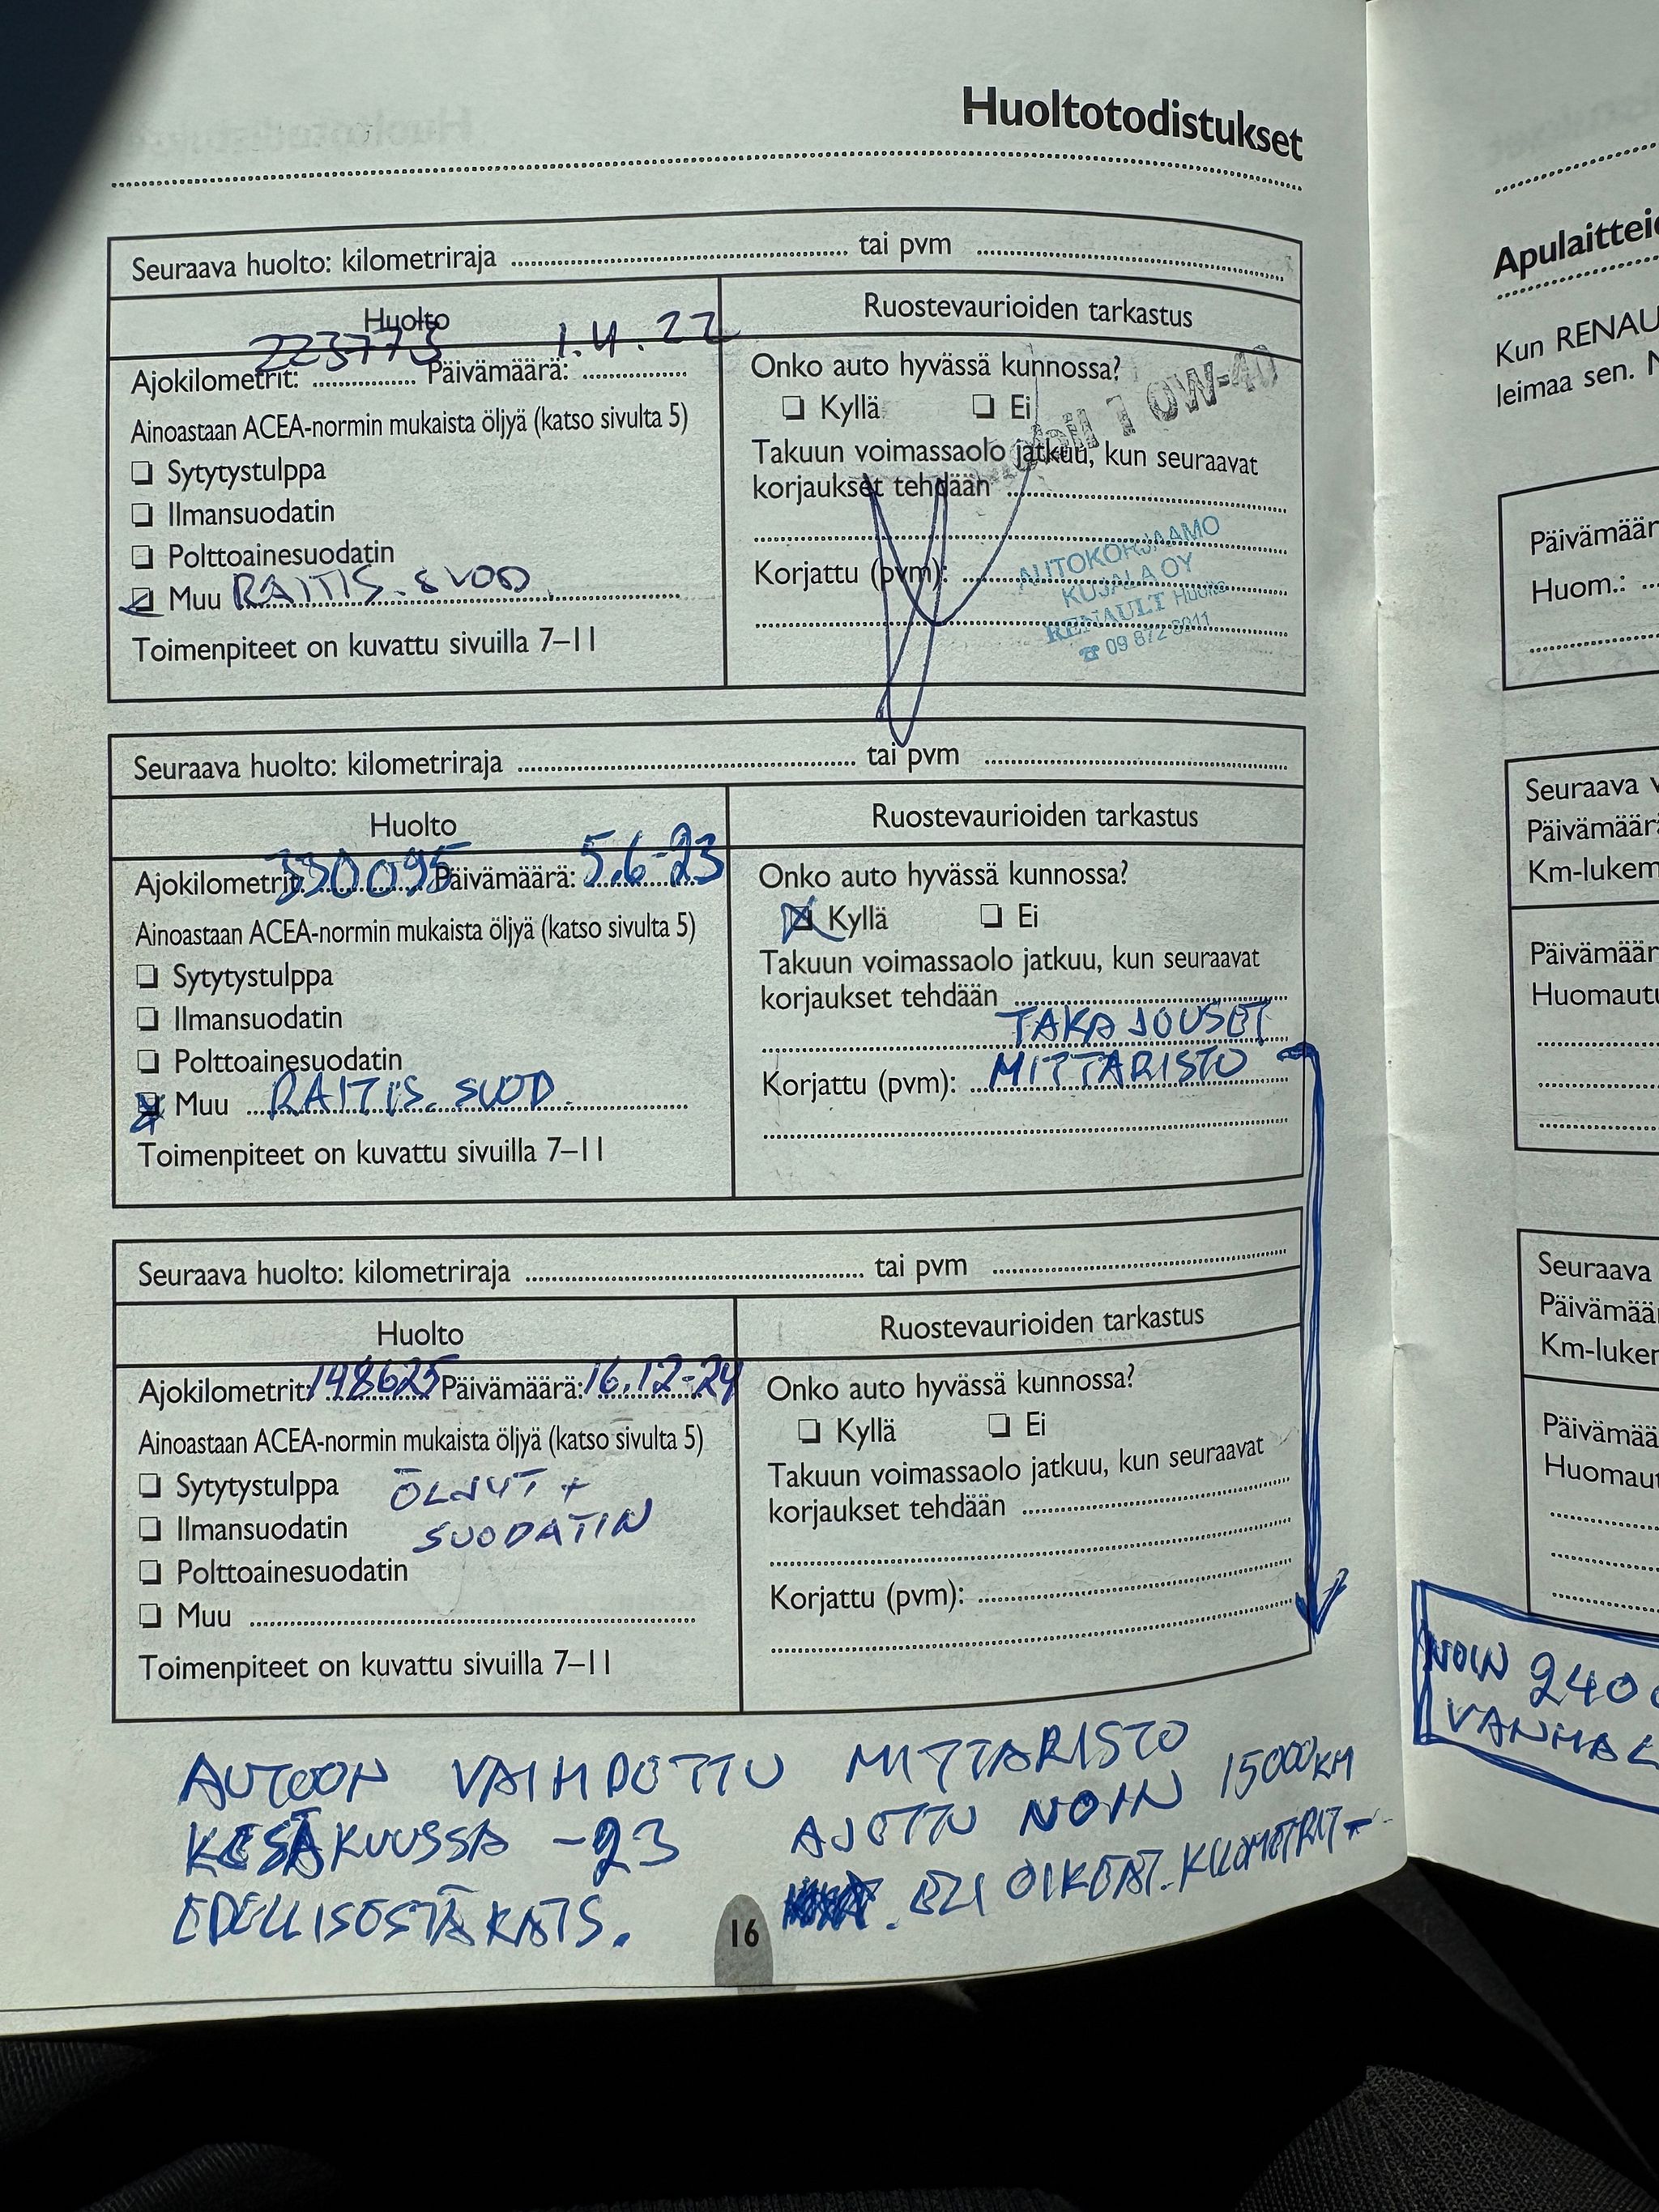 Huoltotodistukset
Seuraava huolto: kilometriraja tai pvm
Huolto
Ruostevaurioiden tarkastus
223773 1.4.22
Ajokilometrit: Päivämäärä:
Ainoastaan ACEA-normin mukaista öljyä (katso sivulta 5)
Sytytystulppa
Ilmansuodatin
Polttoainesuodatin
Muu RAITIS.SUOD.
Toimenpiteet on kuvattu sivuilla 7–11
Onko auto hyvässä kunnossa?
Kyllä Ei
Mobil 1 0W-40
Takuun voimassaolo jatkuu, kun seuraavat
korjaukset tehdään
Korjattu (pvm):
AUTOKORJAAMO
KUJALA OY
RENAULT Huolto
☎ 09 872 8911
Seuraava huolto: kilometriraja tai pvm
Huolto
Ruostevaurioiden tarkastus
Ajokilometrit: 330095 Päivämäärä: 5.6-23
Ainoastaan ACEA-normin mukaista öljyä (katso sivulta 5)
Sytytystulppa
Ilmansuodatin
Polttoainesuodatin
Muu RAITIS.SUOD.
Toimenpiteet on kuvattu sivuilla 7–11
Onko auto hyvässä kunnossa?
Kyllä Ei
Takuun voimassaolo jatkuu, kun seuraavat
korjaukset tehdään
TAKA JOUSET
Korjattu (pvm): MITTARISTO
Seuraava huolto: kilometriraja tai pvm
Huolto
Ruostevaurioiden tarkastus
Ajokilometrit: 148625 Päivämäärä: 16.12-24
Ainoastaan ACEA-normin mukaista öljyä (katso sivulta 5)
Sytytystulppa ÖLJYT +
Ilmansuodatin SUODATIN
Polttoainesuodatin
Muu
Toimenpiteet on kuvattu sivuilla 7–11
Onko auto hyvässä kunnossa?
Kyllä Ei
Takuun voimassaolo jatkuu, kun seuraavat
korjaukset tehdään
Korjattu (pvm):
AUTOON VAIHDETTU MITTARISTO
KESÄKUUSSA -23 AJETTU NOIN 15000KM
EDELLISESTÄ KATS. ELI OIKEAT.KILOMETRIT
16
Apulaitteid
Kun RENAU
leimaa sen.
Päivämäär
Huom.:
Seuraava
Päivämäärä
Km-lukem
Päivämäär
Huomautu
Seuraava
Päivämää
Km-luker
Päivämää
Huomaut
NOIN 240
VANHA